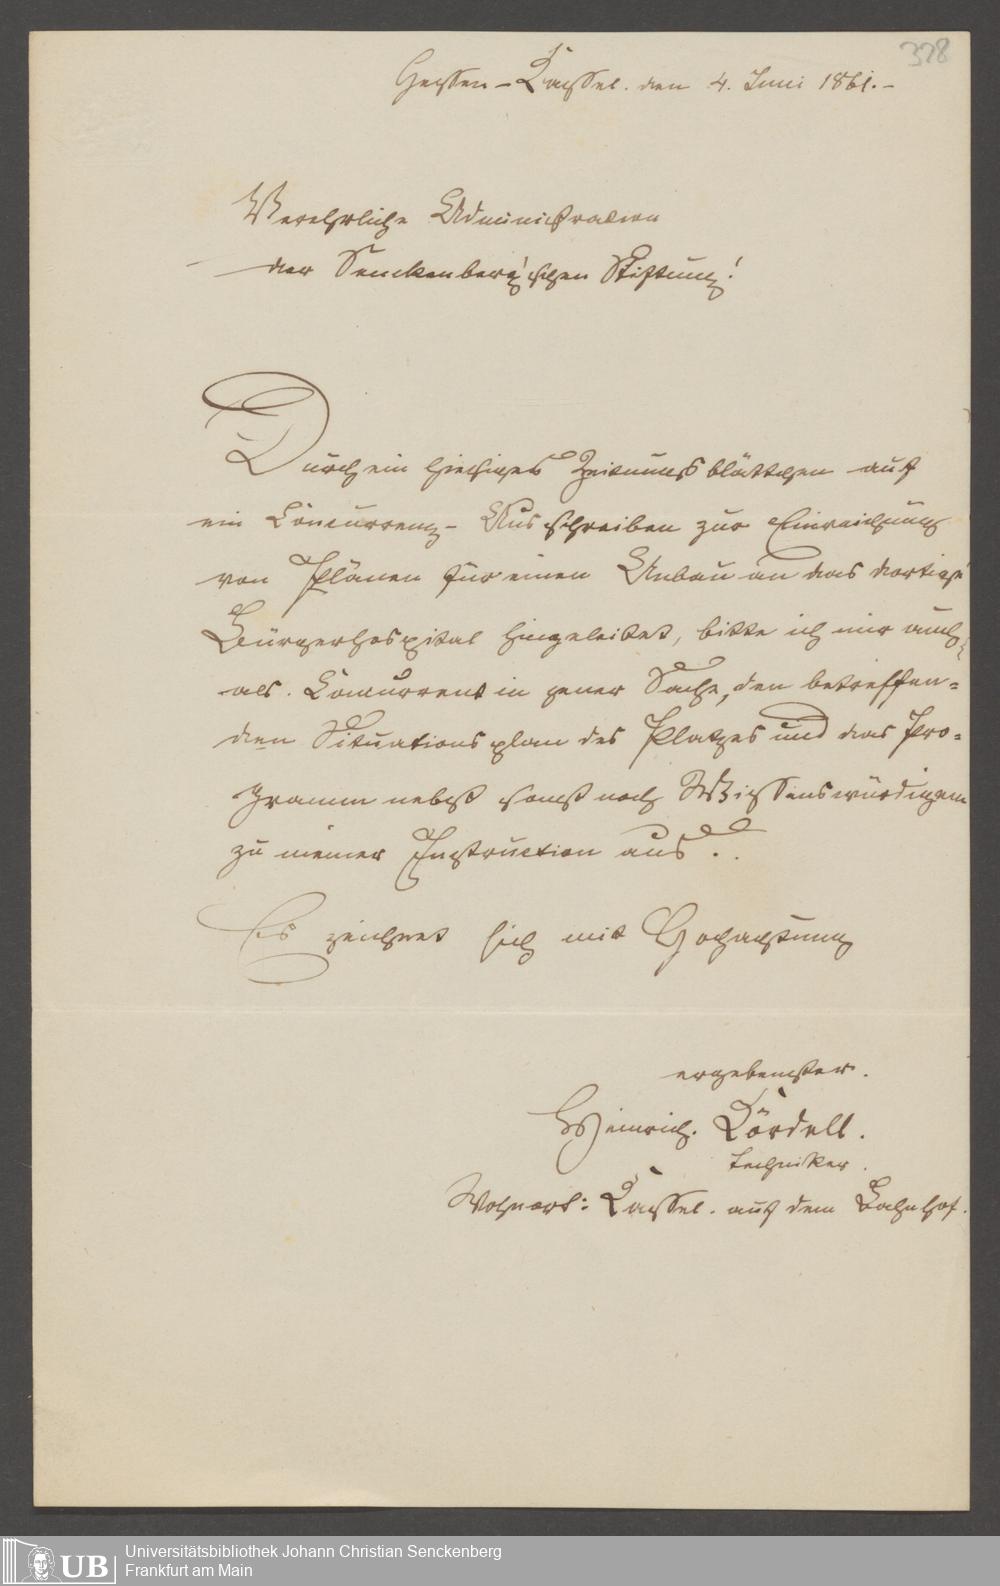 378
Hessen-Cassel. den 4. Juni 1861.-
Verehrliche Administration
der Senckenberg'schen Stiftung!
Durch ein hiesiges Zeitungsblättchen auf
ein Concurrenz-Ausschreiben zur Einreichung
von Plänen für einen Anbau an das dortige
Bürgerhospital hingeleitet, bitte ich mir auch
als. Concurrent in jener Sache, den betreffen=
den Situationsplan des Platzes und das Pro=
gramm nebst sonst noch Wissenswürdigem
zu meiner Instruction aus..
Es zeichnet sich mit Hochachtung
ergebenster.
Heinrich. Cördell.
Techniker.
Wohnort: Cassel. auf dem Bahnhof.
UB
Universitätsbibliothek Johann Christian Senckenberg
Frankfurt am Main